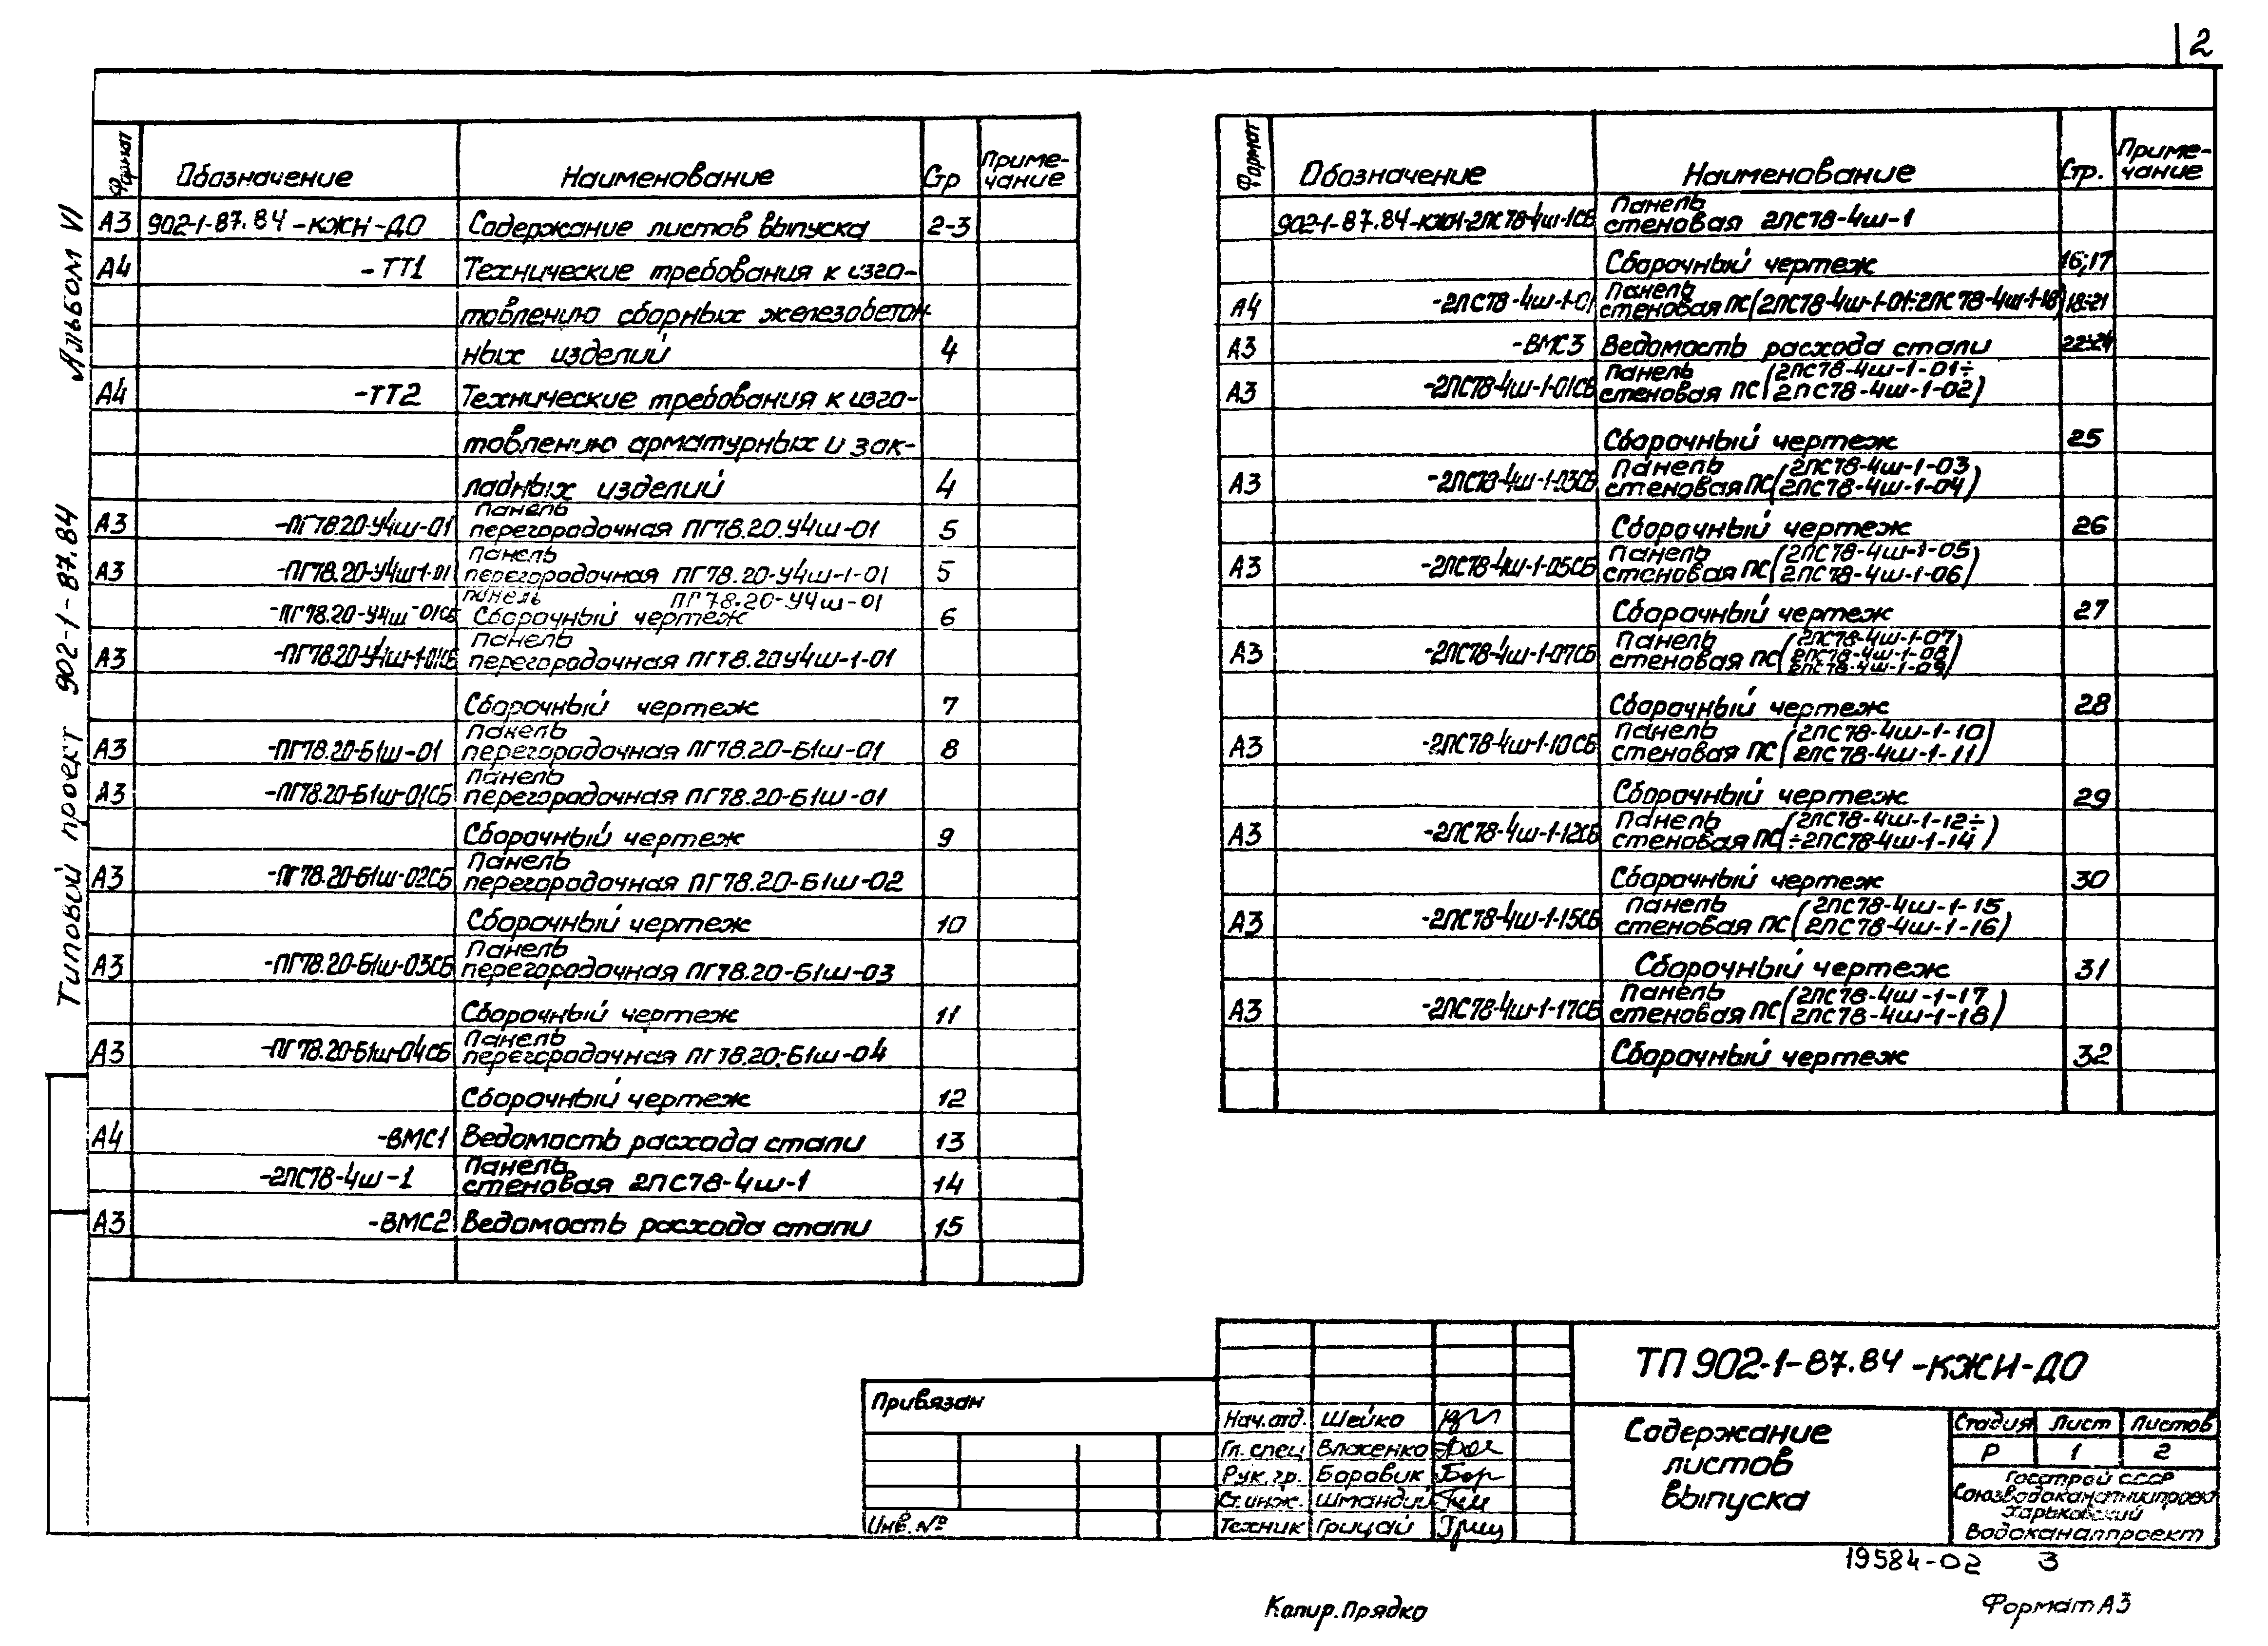 2
Альбом VI
Типовой проект 902-1-87.84
Формат Обозначение Наименование Стр Приме-
чание
А3 902-1-87.84-КЖИ-ДО Содержание листов выпуска 2-3
А4 -ТТ1 Технические требования к изго-
товлению сборных железобетон-
ных изделий 4
А4 -ТТ2 Технические требования к изго-
товлению арматурных и зак-
ладных изделий 4
Панель
А3 -ПГ78.20-У4ш-01 перегородочная ПГ78.20.У4ш-01 5
Панель
А3 -ПГ78.20-У4ш-1-01 перегородочная ПГ78.20-У4ш-1-01 5
панель ПГ78.20-У4ш-01
-ПГ78.20-У4ш-01СБ Сборочный чертеж 6
Панель
А3 -ПГ78.20-У4ш-1-01СБ перегородочная ПГ78.20У4ш-1-01
Сборочный чертеж 7
Панель
А3 -ПГ78.20-Б1ш-01 перегородочная ПГ78.20-Б1ш-01 8
Панель
А3 -ПГ78.20-Б1ш-01СБ перегородочная ПГ78.20-Б1ш-01
Сборочный чертеж 9
Панель
А3 -ПГ78.20-Б1ш-02СБ перегородочная ПГ78.20-Б1ш-02
Сборочный чертеж 10
Панель
А3 -ПГ78.20-Б1ш-03СБ перегородочная ПГ78.20-Б1ш-03
Сборочный чертеж 11
Панель
А3 -ПГ78.20-Б1ш-04СБ перегородочная ПГ78.20-Б1ш-04
Сборочный чертеж 12
А4 -ВМС1 Ведомость расхода стали 13
Панель
-2ПС78-4ш-1 стеновая 2ПС78-4ш-1 14
А3 -ВМС2 Ведомость расхода стали 15
Формат Обозначение Наименование Стр. Приме-
чание
Панель
902-1-87.84-КЖИ-2ПС78-4ш-1СБ стеновая 2ПС78-4ш-1
Сборочный чертеж 16;17
Панель
А4 -2ПС78-4ш-1-01 стеновая ПС(2ПС78-4ш-1-01÷2ПС78-4ш-1-18) 18÷21
А3 -ВМС3 Ведомость расхода стали 22÷24
Панель (2ПС78-4ш-1-01÷
А3 -2ПС78-4ш-1-01СБ стеновая ПС 2ПС78-4ш-1-02)
Сборочный чертеж 25
Панель (2ПС78-4ш-1-03
А3 -2ПС78-4ш-1-03СБ стеновая ПС 2ПС78-4ш-1-04)
Сборочный чертеж 26
Панель (2ПС78-4ш-1-05
А3 -2ПС78-4ш-1-05СБ стеновая ПС 2ПС78-4ш-1-06)
Сборочный чертеж 27
Панель (2ПС78-4ш-1-07
А3 -2ПС78-4ш-1-07СБ стеновая ПС 2ПС78-4ш-1-08
2ПС78-4ш-1-09)
Сборочный чертеж 28
Панель (2ПС78-4ш-1-10
А3 -2ПС78-4ш-1-10СБ стеновая ПС 2ПС78-4ш-1-11)
Сборочный чертеж 29
Панель (2ПС78-4ш-1-12÷
А3 -2ПС78-4ш-1-12СБ стеновая ПС ÷2ПС78-4ш-1-14)
Сборочный чертеж 30
Панель (2ПС78-4ш-1-15
А3 -2ПС78-4ш-1-15СБ стеновая ПС 2ПС78-4ш-1-16)
Сборочный чертеж 31
Панель (2ПС78-4ш-1-17
А3 -2ПС78-4ш-1-17СБ стеновая ПС 2ПС78-4ш-1-18)
Сборочный чертеж 32
Привязан
Инв. №
Нач. отд. Шейко
Гл. спец Власенко
Рук. гр. Боровик
Ст. инж. Шмандий
Техник Грицай
ТП 902-1-87.84-КЖИ-ДО
Содержание
листов
выпуска
Стадия Лист Листов
Р 1 2
Госстрой СССР
Союзводоканалниипроект
Харьковский
Водоканалпроект
19584-02 3
Копир. Прядко
Формат А3